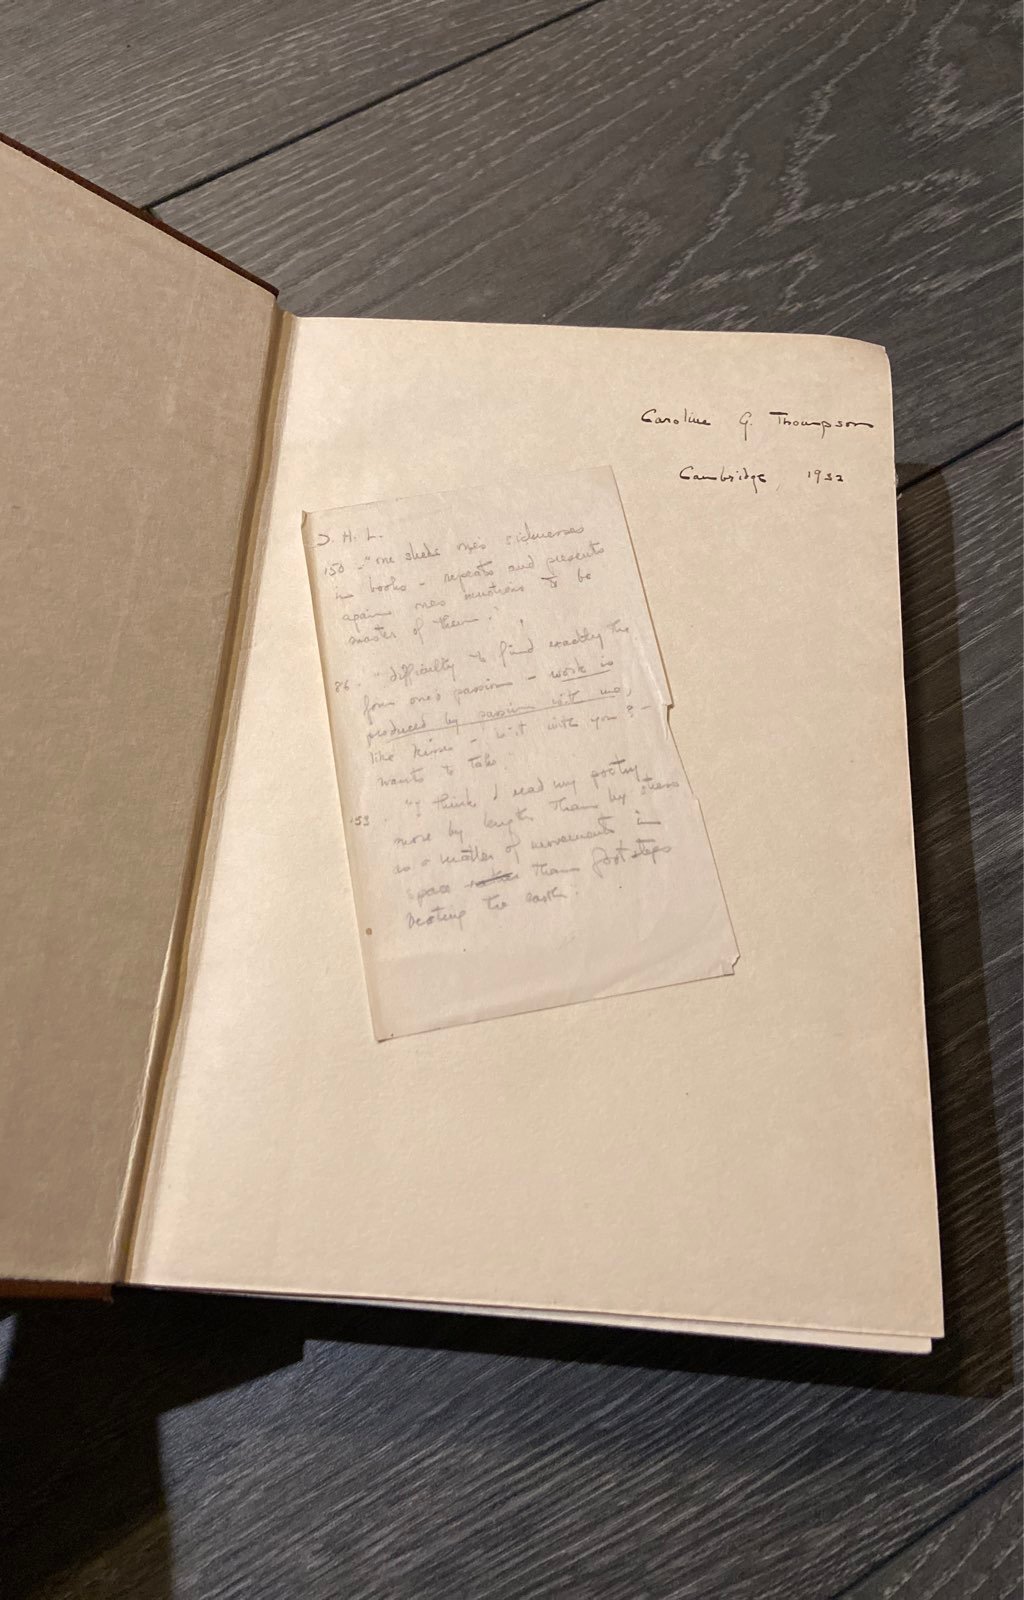 Caroline G. Thompson
Cambridge, 1932
D. H. L.
150 - "one sheds one's sicknesses
in books - repeats and presents
again one's emotions to be
master of them."
86. "difficulty to find exactly the
form one's passion - work is
produced by passion with me,
like kisses - is it with you? -
wants to take."
153. "I think I read my poetry
more by length than by stress
as a matter of movements in
space than footsteps
hitting the earth."